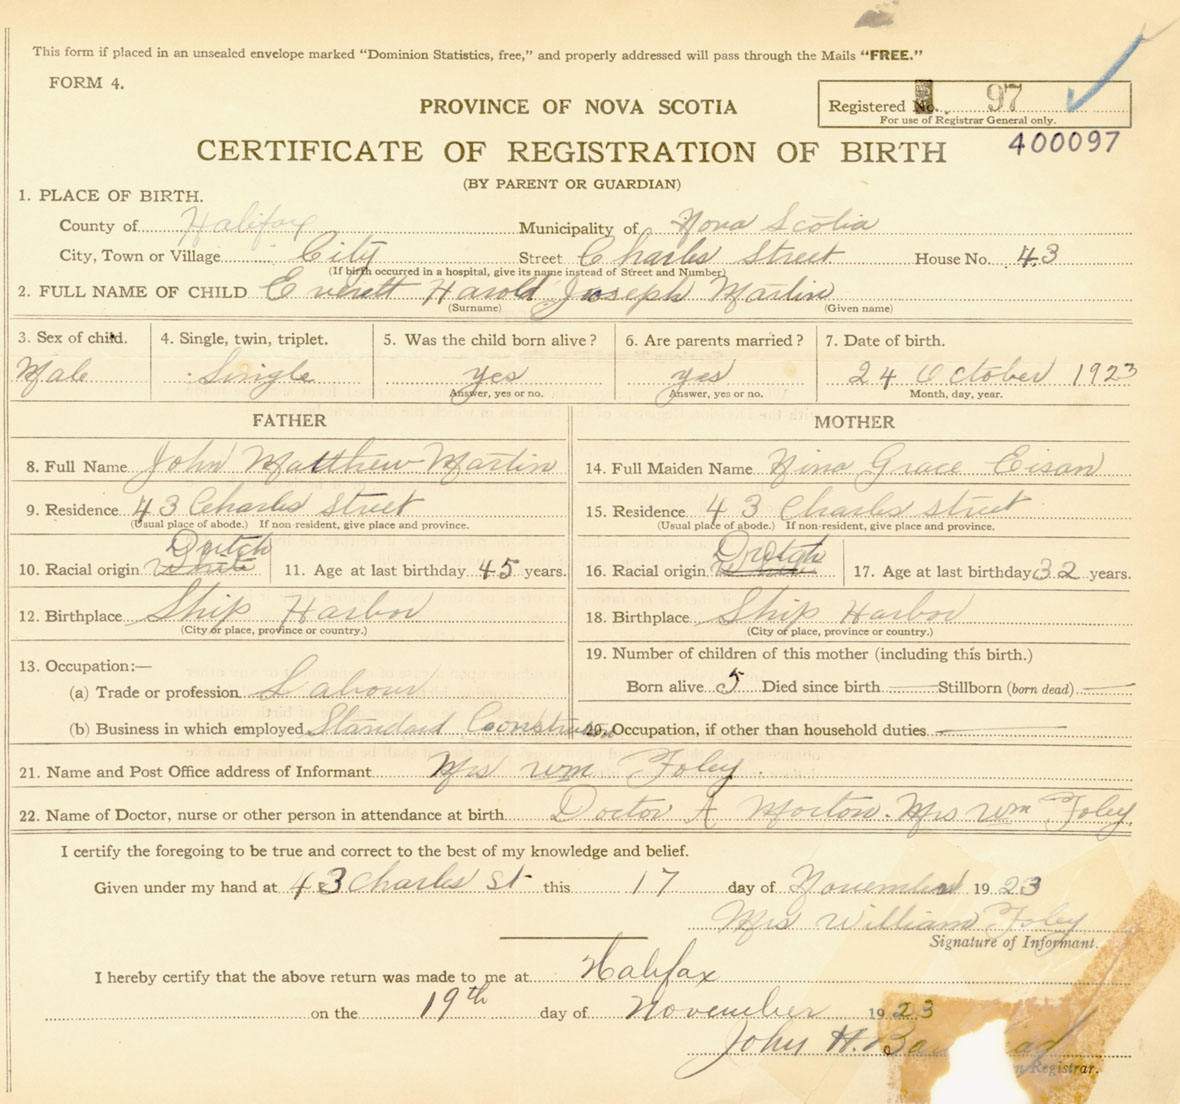 This form if placed in an unsealed envelope marked "Dominion Statistics, free," and properly addressed will pass through the Mails "FREE."
FORM 4.
PROVINCE OF NOVA SCOTIA
Registered No. 97
For use of Registrar General only.
400097
CERTIFICATE OF REGISTRATION OF BIRTH
(BY PARENT OR GUARDIAN)
1. PLACE OF BIRTH.
County of Halifax Municipality of Nova Scotia
City, Town or Village City Street Charles Street House No. 43
(If birth occurred in a hospital, give its name instead of Street and Number)
2. FULL NAME OF CHILD Everett Harold Joseph Martin
(Surname) (Given name)
3. Sex of child. 4. Single, twin, triplet. 5. Was the child born alive? 6. Are parents married? 7. Date of birth.
Male Single yes yes 24 October 1923
Answer, yes or no. Answer, yes or no. Month, day, year.
FATHER MOTHER
8. Full Name John Matthew Martin 14. Full Maiden Name Nina Grace Eisan
9. Residence 43 Charles Street 15. Residence 43 Charles Street
(Usual place of abode.) If non-resident, give place and province. (Usual place of abode.) If non-resident, give place and province.
10. Racial origin White 11. Age at last birthday 45 years. 16. Racial origin 17. Age at last birthday 32 years.
12. Birthplace Ship Harbor 18. Birthplace Ship Harbor
(City or place, province or country.) (City or place, province or country.)
13. Occupation:— 19. Number of children of this mother (including this birth.)
(a) Trade or profession Labour Born alive 5 Died since birth Stillborn (born dead)
(b) Business in which employed Standard Construction 20. Occupation, if other than household duties
21. Name and Post Office address of Informant Mrs Wm Foley
22. Name of Doctor, nurse or other person in attendance at birth Doctor A Morton. Mrs Wm Foley
I certify the foregoing to be true and correct to the best of my knowledge and belief.
Given under my hand at 43 Charles St this 17 day of November 1923
Mrs William Foley
Signature of Informant.
I hereby certify that the above return was made to me at Halifax
on the 19th day of November 1923
John H.
Registrar.